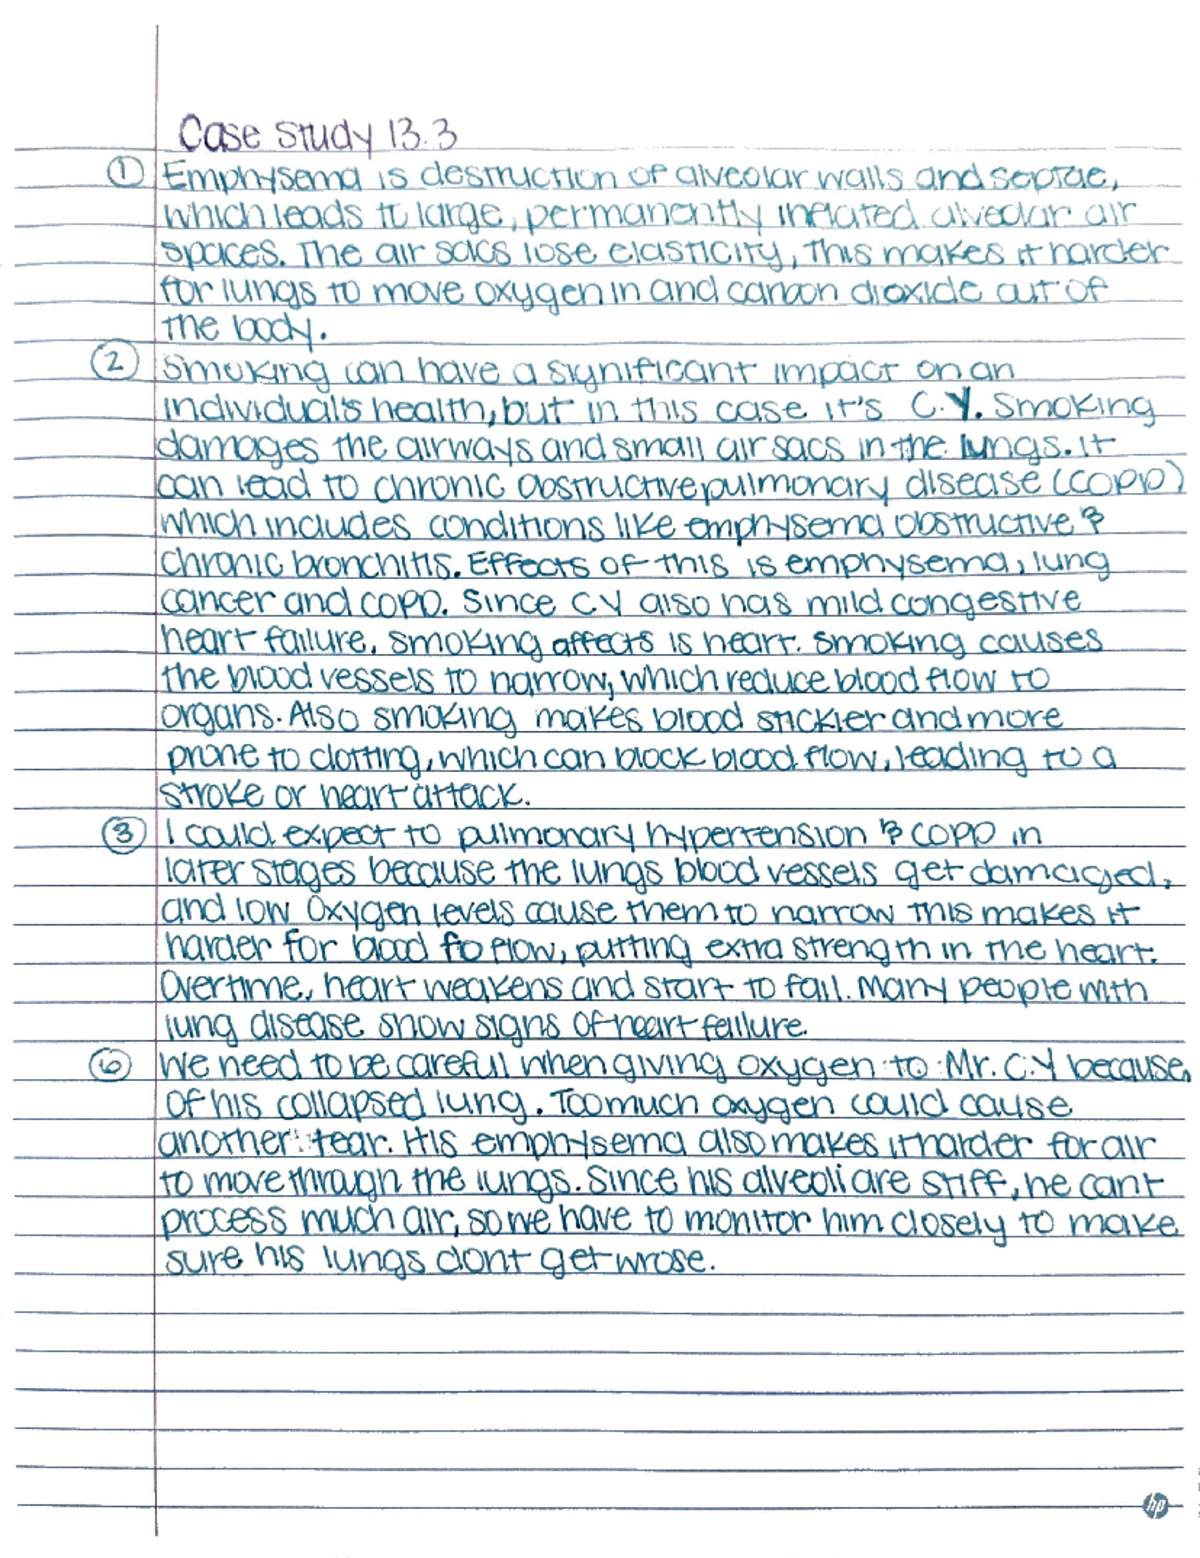 Case study 13.3
① Emphysema is destruction of alveolar walls and septae,
which leads to large, permanently inflated alveolar air
spaces. The air sacs lose elasticity, this makes it harder
for lungs to move oxygen in and carbon dioxide out of
the body.
② Smoking can have a significant impact on an
individual's health, but in this case it's C.Y. Smoking
damages the airways and small air sacs in the lungs. It
can lead to chronic obstructive pulmonary disease (COPD)
which includes conditions like emphysema obstructive &
chronic bronchitis. Effects of this is emphysema, lung
cancer and COPD. Since CY also has mild congestive
heart failure, smoking affects is heart. Smoking causes
the blood vessels to narrow, which reduce blood flow to
organs. Also smoking makes blood stickier and more
prone to clotting, which can block blood flow, leading to a
stroke or heart attack.
③ I could expect to pulmonary hypertension & COPD in
later stages because the lungs blood vessels get damaged,
and low oxygen levels cause them to narrow this makes it
harder for blood flo flow, putting extra strength in the heart.
Overtime, heart weakens and start to fail. Many people with
lung disease show signs of heart feilure.
⑥ We need to be careful when giving oxygen to Mr. C.Y because,
of his collapsed lung. Too much oxygen could cause
another tear. His emphysema also makes it harder for air
to move through the lungs. Since his alveoli are stiff, he cant
process much air, so we have to monitor him closely to make
sure his lungs dont get wrose.
hp